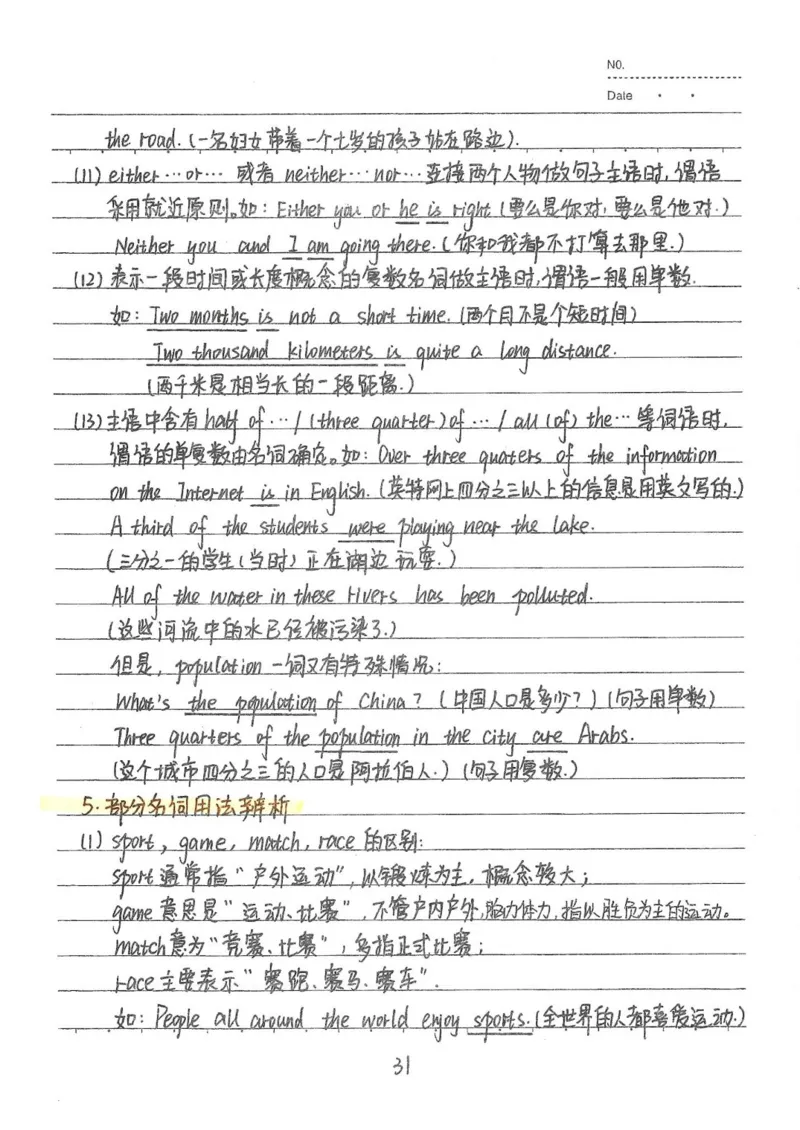 NO.
Date
the road.(一名妇女带着一个七岁的孩子站在路边).
(11) either…or… 或者 neither…nor…连接两个人物做句子主语时,谓语
采用就近原则。如: Either you or he is right.(要么是你对,要么是他对.)
Neither you and I am going there.(你和我都不打算去那里.)
(12) 表示一段时间或长度概念的复数名词做主语时,谓语一般用单数.
如: Two months is not a short time.(两个月不是个短时间)
Two thousand kilometers is quite a long distance.
(两千米是相当长的一段距离.)
(13)主语中含有half of…/(three quarter)of…/all (of) the…等词语时,
谓语的单复数由名词确定。如: Over three quaters of the information
on the Internet is in English.(英特网上四分之三以上的信息是用英文写的.)
A third of the students were playing near the lake.
(三分之一的学生(当时)正在湖边玩耍.)
All of the water in these rivers has been polluted.
(这些河流中的水已经被污染了.)
但是, population 一词又有特殊情况:
What's the population of China?(中国人口是多少?)(句子用单数)
Three quarters of the population in the city are Arabs.
(这个城市四分之三的人口是阿拉伯人.)(句子用复数.)
5.部分名词用法辨析
(1) sport, game, match, race 的区别:
sport通常指"户外运动",以锻炼为主,概念较大;
game意思是"运动、比赛",不管户内户外,脑力体力,指以胜负为主的运动。
match意为"竞赛、比赛",多指正式比赛;
race主要表示"赛跑、赛马、赛车".
如: People all around the world enjoy sports.(全世界的人都喜爱运动.)
31